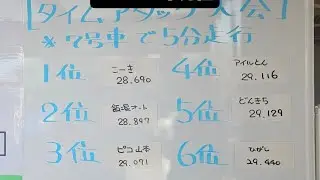 [タイムアタック大会]
*7号車で5分走行
1位 こーき 28.690
2位 飯塚オート 28.897
3位 ピコ山本 29.071
4位 アイルトン 29.116
5位 どんきち 29.129
6位 ひがし 29.440